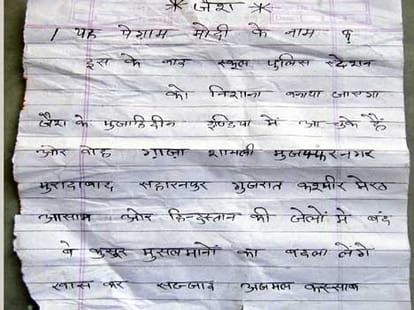 * जैश *
/ यह पेग़ाम मोदी के नाम
इस के बाद स्कूल पुलिस स्टेशन
को निशाना बनाया जाएगा
जैश के मुजाहिदीन इण्डिया में आ चुके हैं
और वोह शामली मुजफ्फरनगर
मुरादाबाद सहारनपुर गुजरात कश्मीर मेरठ
आसाम और हिन्दुस्तान की जेलों में बंद
बे कुसूर मुसलमानों का बदला लेंगे
खास कर सज्जाद अजमल कस्साब